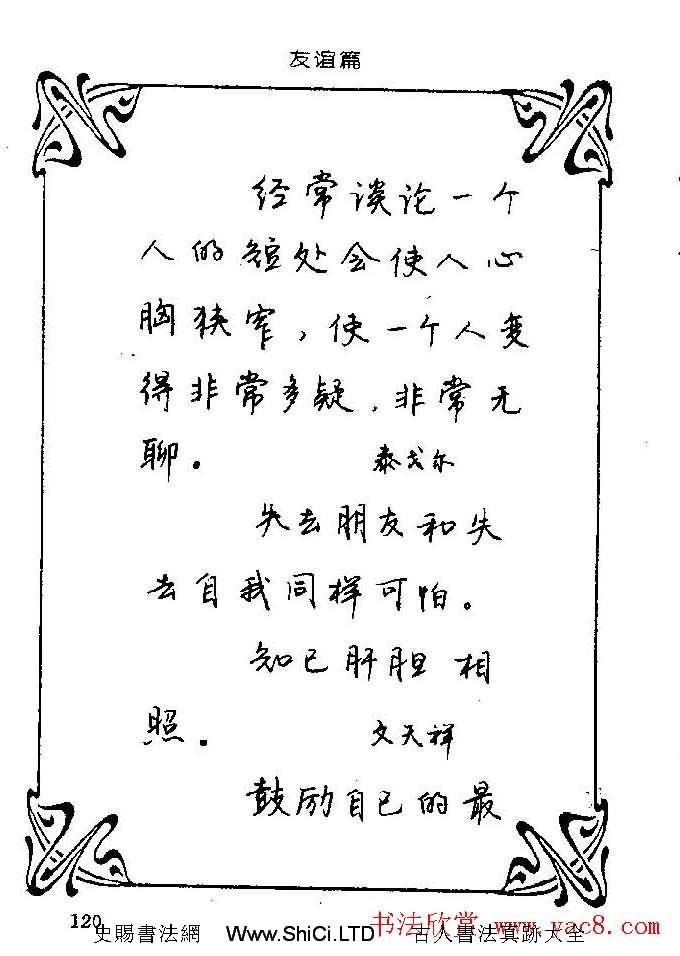 友谊篇
经常谈论一个
人的短处会使人心
胸狭窄，使一个人变
得非常多疑，非常无
聊。 泰戈尔
失去朋友和失
去自我同样可怕。
知己肝胆相
照。 文天祥
鼓励自己的最
120
书法欣赏 www.yac8.com
史賜書法網 Www.ShiCi.LTD 古人書法真跡大全